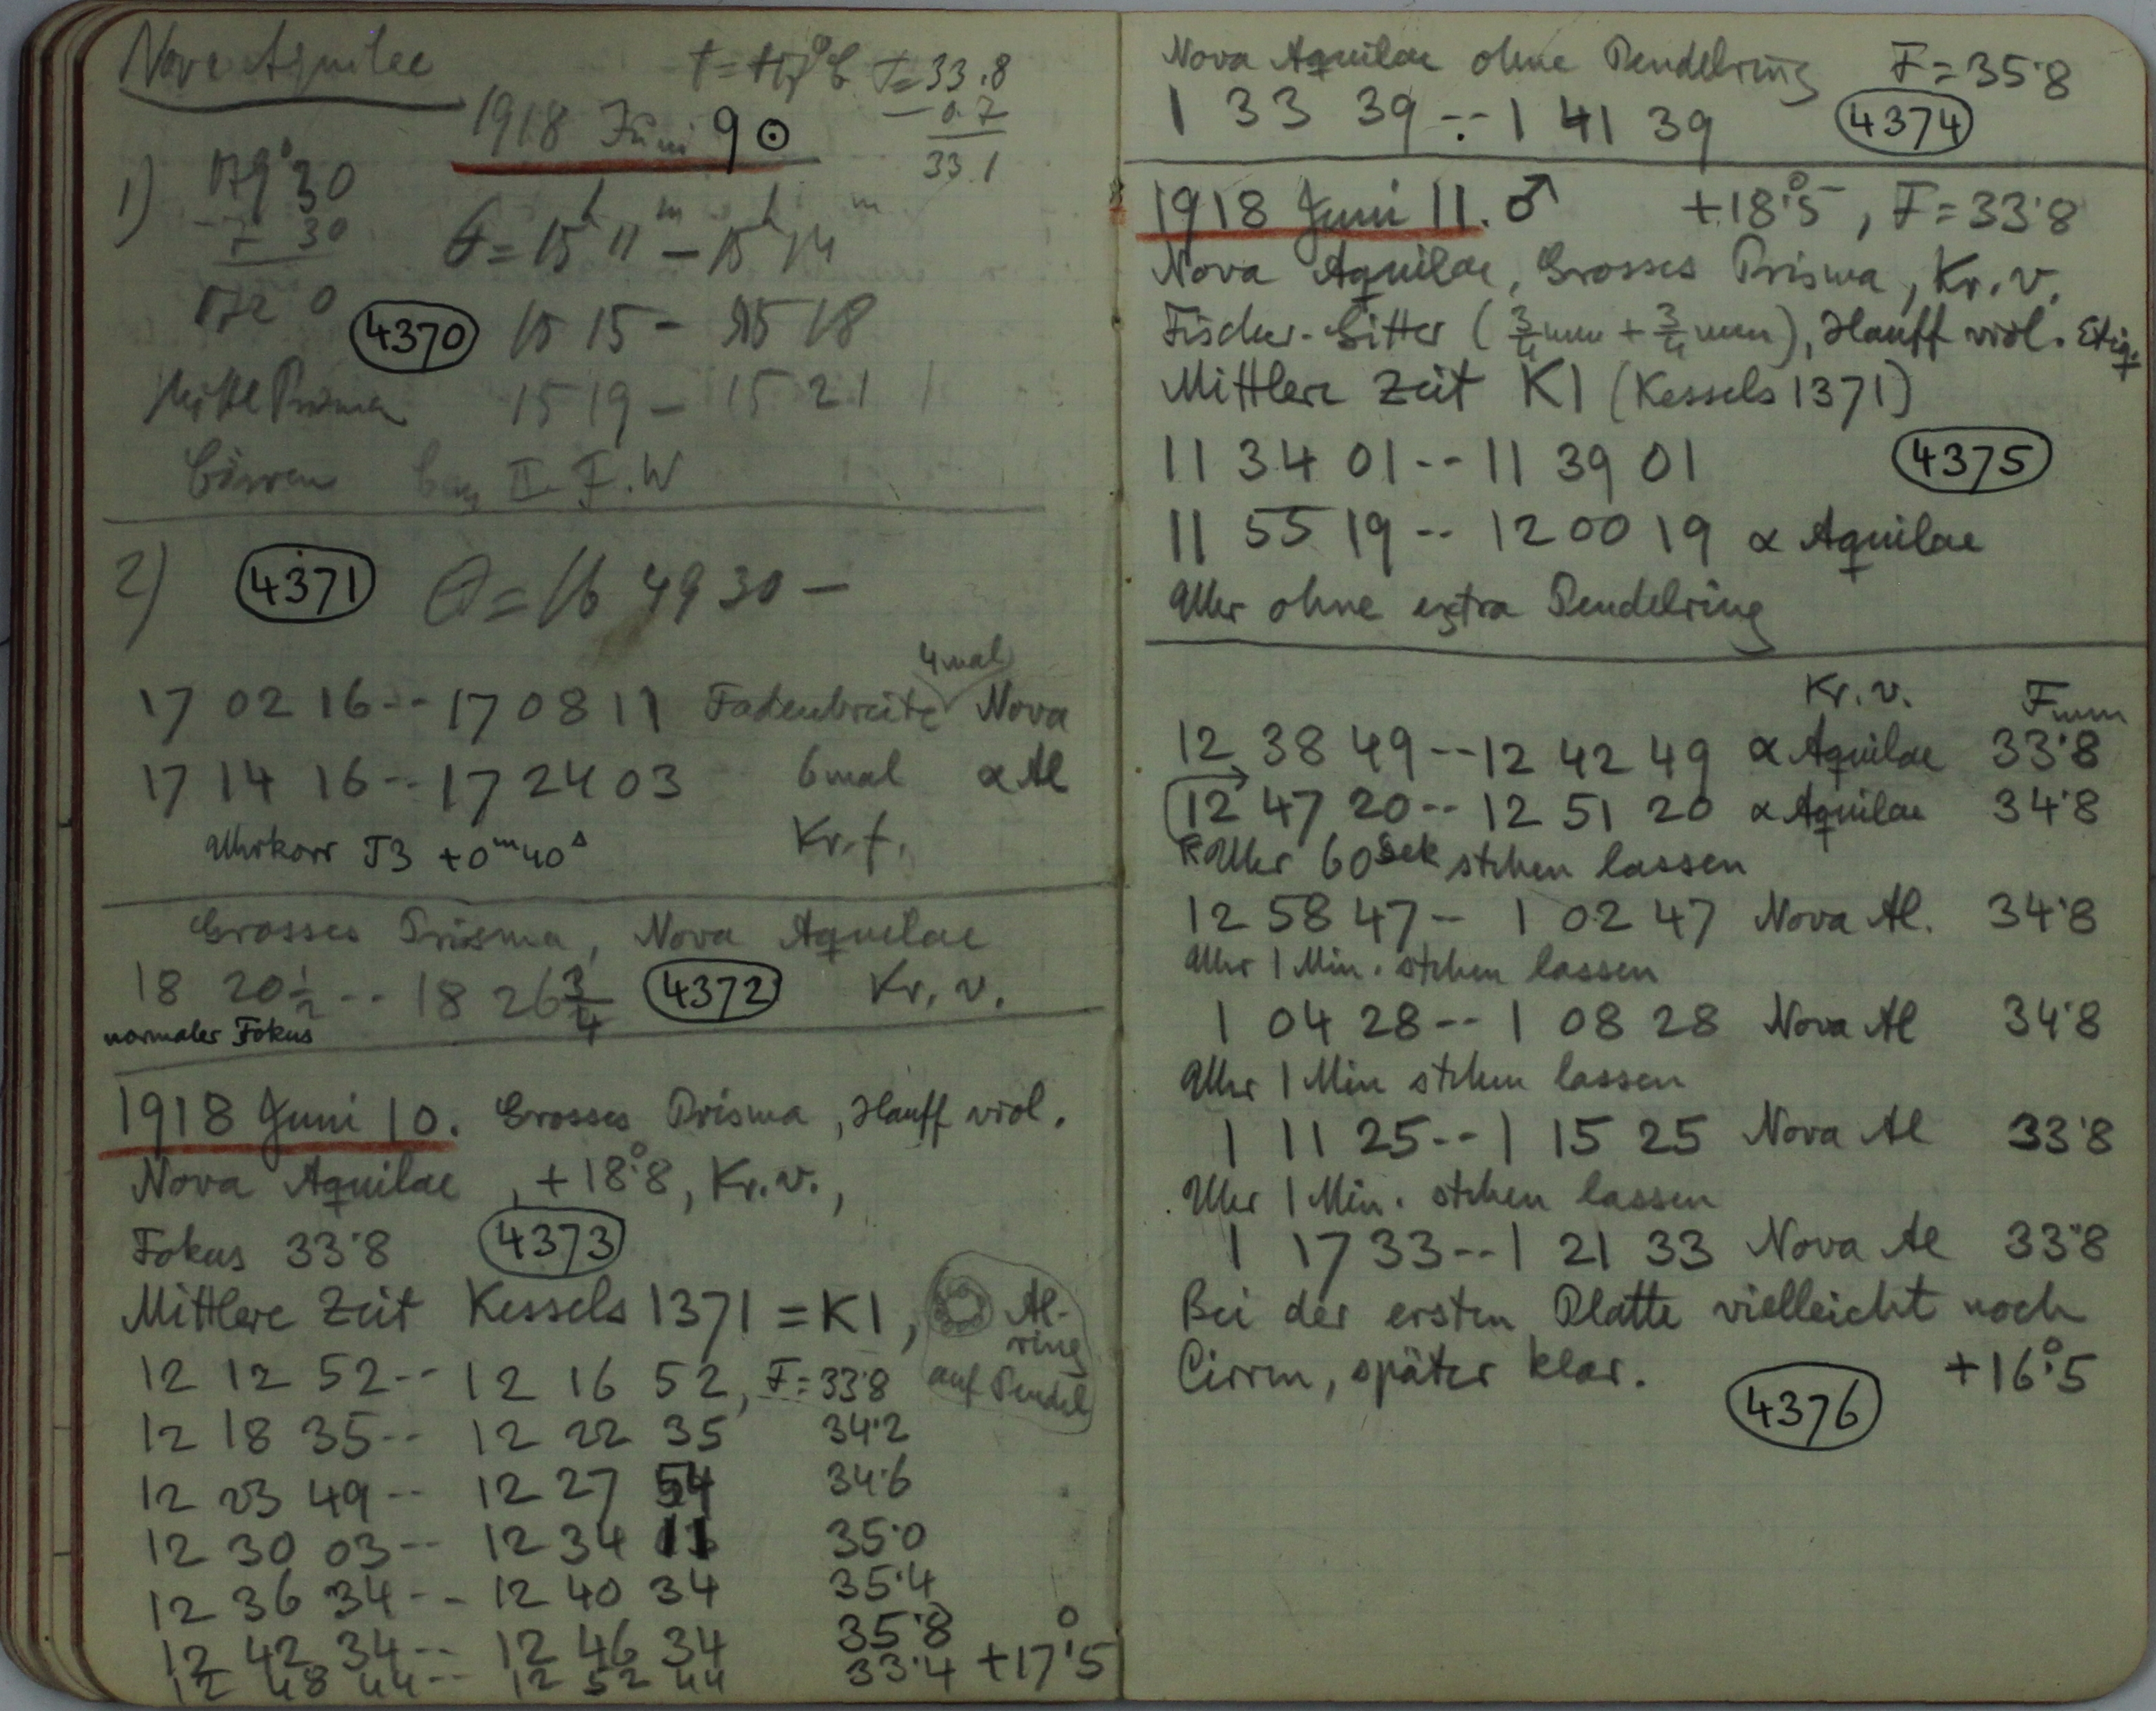 Nova Aquilae
F=33.8
-0.7
33.1
1918 Juni 9 ⊙
1) 179° 30
-7 30
172 0
θ = 15h 11m – 15h 14m
4370 15 15 – 15 18
Mittl Prisma 15 19 – 15 21
Cirren II F.W
2) 4371 θ = 16 49 30 –
4mal
17 02 16 -- 17 08 11 Fadenbreite Nova
17 14 16 -- 17 24 03 6mal α Al
Uhrkorr J3 +0m40s Kr. f.
Grosses Prisma, Nova Aquilae
18 20½ -- 18 26¾ 4372 Kr. v.
normaler Fokus
1918 Juni 10. Grosses Prisma, Hauff viol.
Nova Aquilae, +18°.8, Kr. v.,
Fokus 33.8 4373
Mittlere Zeit Kessels 1371 = K1,
Al-
ring
auf Pendel
12 12 52 -- 12 16 52, F=33.8
12 18 35 -- 12 22 35 34.2
12 23 49 -- 12 27 54 34.6
12 30 03 -- 12 34 11 35.0
12 36 34 -- 12 40 34 35.4
12 42 34 -- 12 46 34 35.8
12 48 44 -- 12 52 44 33.4 +17°.5
Nova Aquilae ohne Pendelring F=35.8
1 33 39 -- 1 41 39 4374
1918 Juni 11. ♂ +18°.5, F=33.8
Nova Aquilae, Grosses Prisma, Kr. v.
Fischer-Gitter (¾mm + ¾mm), Hauff viol. Etiq.
Mittlere Zeit K1 (Kessels 1371)
11 34 01 -- 11 39 01 4375
11 55 19 -- 12 00 19 α Aquilae
Uhr ohne extra Pendelring
Kr. v. Fmm
12 38 49 -- 12 42 49 α Aquilae 33.8
12 47 20 -- 12 51 20 α Aquilae 34.8
Uhr 60 Sek stehen lassen
12 58 47 -- 1 02 47 Nova Al. 34.8
Uhr 1 Min. stehen lassen
1 04 28 -- 1 08 28 Nova Al 34.8
Uhr 1 Min stehen lassen
1 11 25 -- 1 15 25 Nova Al 33.8
Uhr 1 Min. stehen lassen
1 17 33 -- 1 21 33 Nova Al 33.8
Bei der ersten Platte vielleicht noch
Cirren, später klar. +16°.5
4376